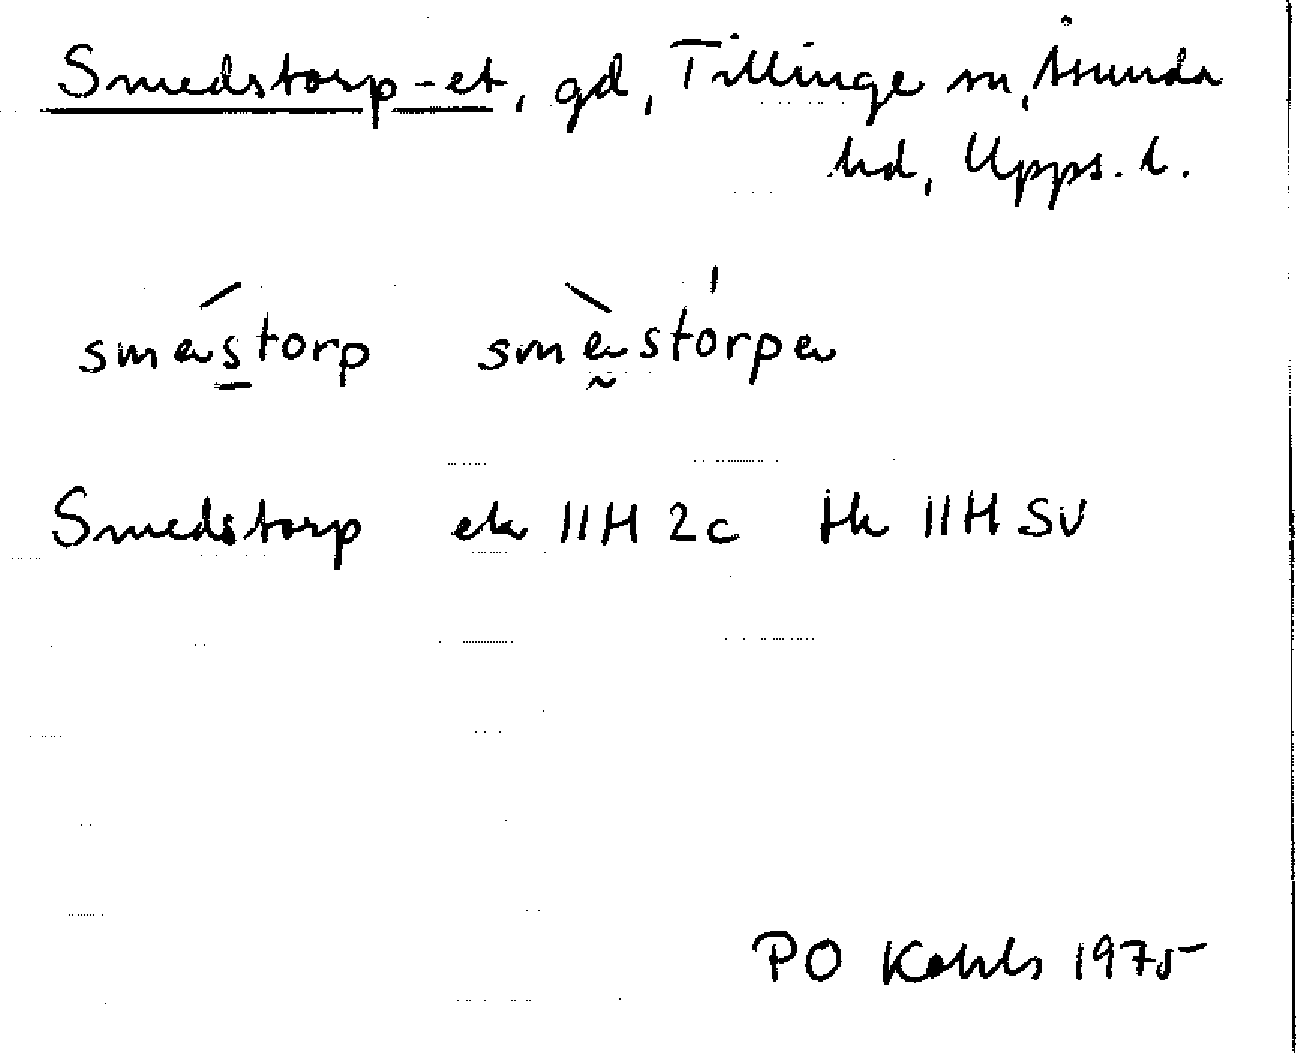 Smedstorp -et, gd, Tillinge sn, Åsunda
hd, Upps. l.
smestorp smèstórpe
Smedstorp ek 11H 2c tk 11H SV
PO 1975